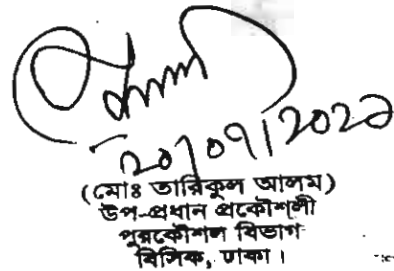 ২০/০৭/২০২৬
(মোঃ তারিকুল আলম)
উপ-প্রধান প্রকৌশলী
পুরকৌশল বিভাগ
বিসিক, ঢাকা।